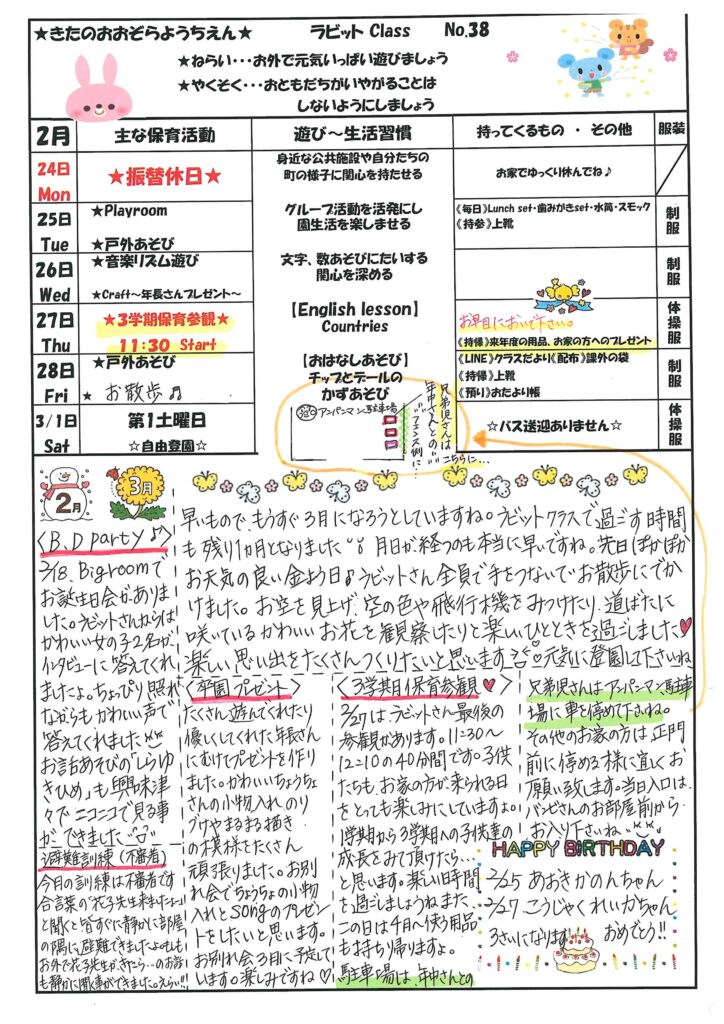 ★きたのおおぞらようちえん★ ラビット Class No.38
★ねらい・・・お外で元気いっぱい遊びましょう
★やくそく・・・おともだちがいやがることは
しないようにしましょう
2月 主な保育活動 遊び～生活習慣 持ってくるもの ・ その他 服装
24日 Mon ★振替休日★ 身近な公共施設や自分たちの
町の様子に関心を持たせる お家でゆっくり休んでね♪
25日 Tue ★Playroom
★戸外あそび グループ活動を活発にし
園生活を楽しませる 《毎日》Lunch set・歯みがきset・水筒・スモック
《持参》上靴 制服
26日 Wed ★音楽リズム遊び
★Craft～年長さんプレゼント～ 文字、数あそびにたいする
関心を深める 制服
27日 Thu ★3学期保育参観★
11:30 Start 【English lesson】
Countries お早目においで下さい。
《持帰》来年度の用品、お家の方へのプレゼント 体操服
28日 Fri ★戸外あそび
★ お散歩♬ 【おはなしあそび】
チップとデールの
かずあそび 《LINE》クラスだより《配布》課外の袋
《持帰》上靴
《預り》おたより帳 制服
3/1日 Sat 第1土曜日
☆自由登園☆ ☆バス送迎ありません☆ 体操服
アンパンマン駐車場
兄弟児さんは
年中さんとの
フェンス側に…
こちらに…
2月
3月
〈B.D party♪〉
2/18. Big roomで
お誕生日会がありま
した。ラビットさんからは
かわいい女の子2名が
インタビューに答えてくれ
ましたよ。ちょっぴり照れ
ながらもかわいい声で
答えてくれました
お話あそびの「しらゆ
きひめ」も興味津
々でニコニコで見る事
ができました
避難訓練(不審者)
今月の訓練は不審者です
合言葉の「花子先生来ました…」
と聞くと皆すぐに静かに部屋
の隅に避難できましたよ。もしも
お外で花子先生がきたら…のお話
も静かに聞く事ができました。えらい!!!
早いもので、もうすぐ3月になろうとしていますね。ラビットクラスで過ごす時間
も残り1か月となりました 月日が経つのも本当に早いですね。先日ぽかぽか
お天気の良い金よう日♪ラビットさん全員で手をつないでお散歩にでか
けました。お空を見上げ、空の色や飛行機をみつけたり、道ばたに
咲いているかわいいお花を観察したりと楽しいひとときを過ごしました♥
楽しい思い出をたくさんつくりたいと思います 元気に登園して下さいね
〈卒園プレゼント〉
たくさん遊んでくれたり
優しくしてくれた年長さん
にむけてプレゼントを作り
ました。かわいいちょうちょ
さんの小物入れ のり
づけやまるまる描き
の模様をたくさん
頑張りました。お別
れ会でちょうちょの小物
入れとsongのプレゼン
トをしたいと思います。
お別れ会3月に予定して
います。楽しみですね♡
〈3学期保育参観♥〉
2/27はラビットさん最後の
参観があります。11:30～
12:10の40分間です。子供
たちも、お家の方が来られる日
をとっても楽しみにしていますよ。
1学期から3学期への子供達の
成長をみて頂けたら…
と思います。楽しい時間
を過ごしましょうね また、
この日は4月～使う用品
も持ち帰りますよ。
駐車場は、年中さんとの
兄弟児さんはアンパンマン駐車
場に車を停めて下さいね。
その他のお家の方は正門
前に停める様に宜しくお
願い致します。当日入口は、
バンビさんのお部屋前から
お入り下さいね
HAPPY BIRTHDAY
2/25 あおきかのんちゃん
2/27 こうじゃくれいかちゃん
3さいになります おめでとう!!